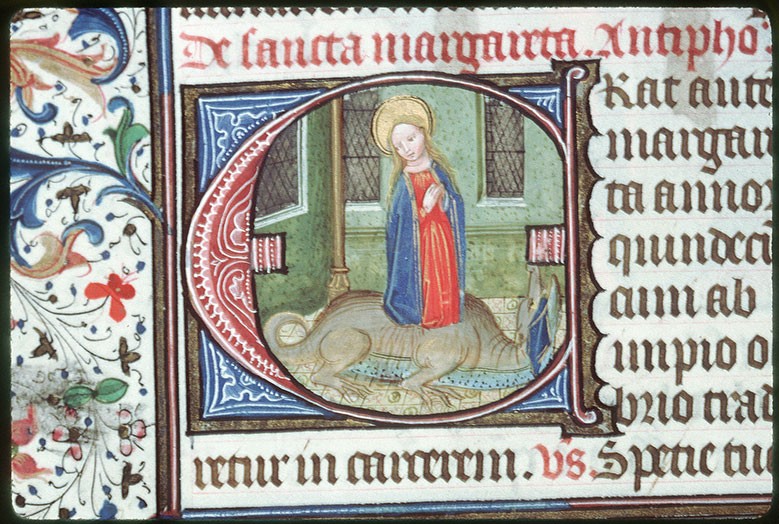 De sancta margareta. Antipho.
ERat aute
margar
ta annor
quindeci
cum ab
impio o
brio trad
retur in carcerem. Vs. Specie tu